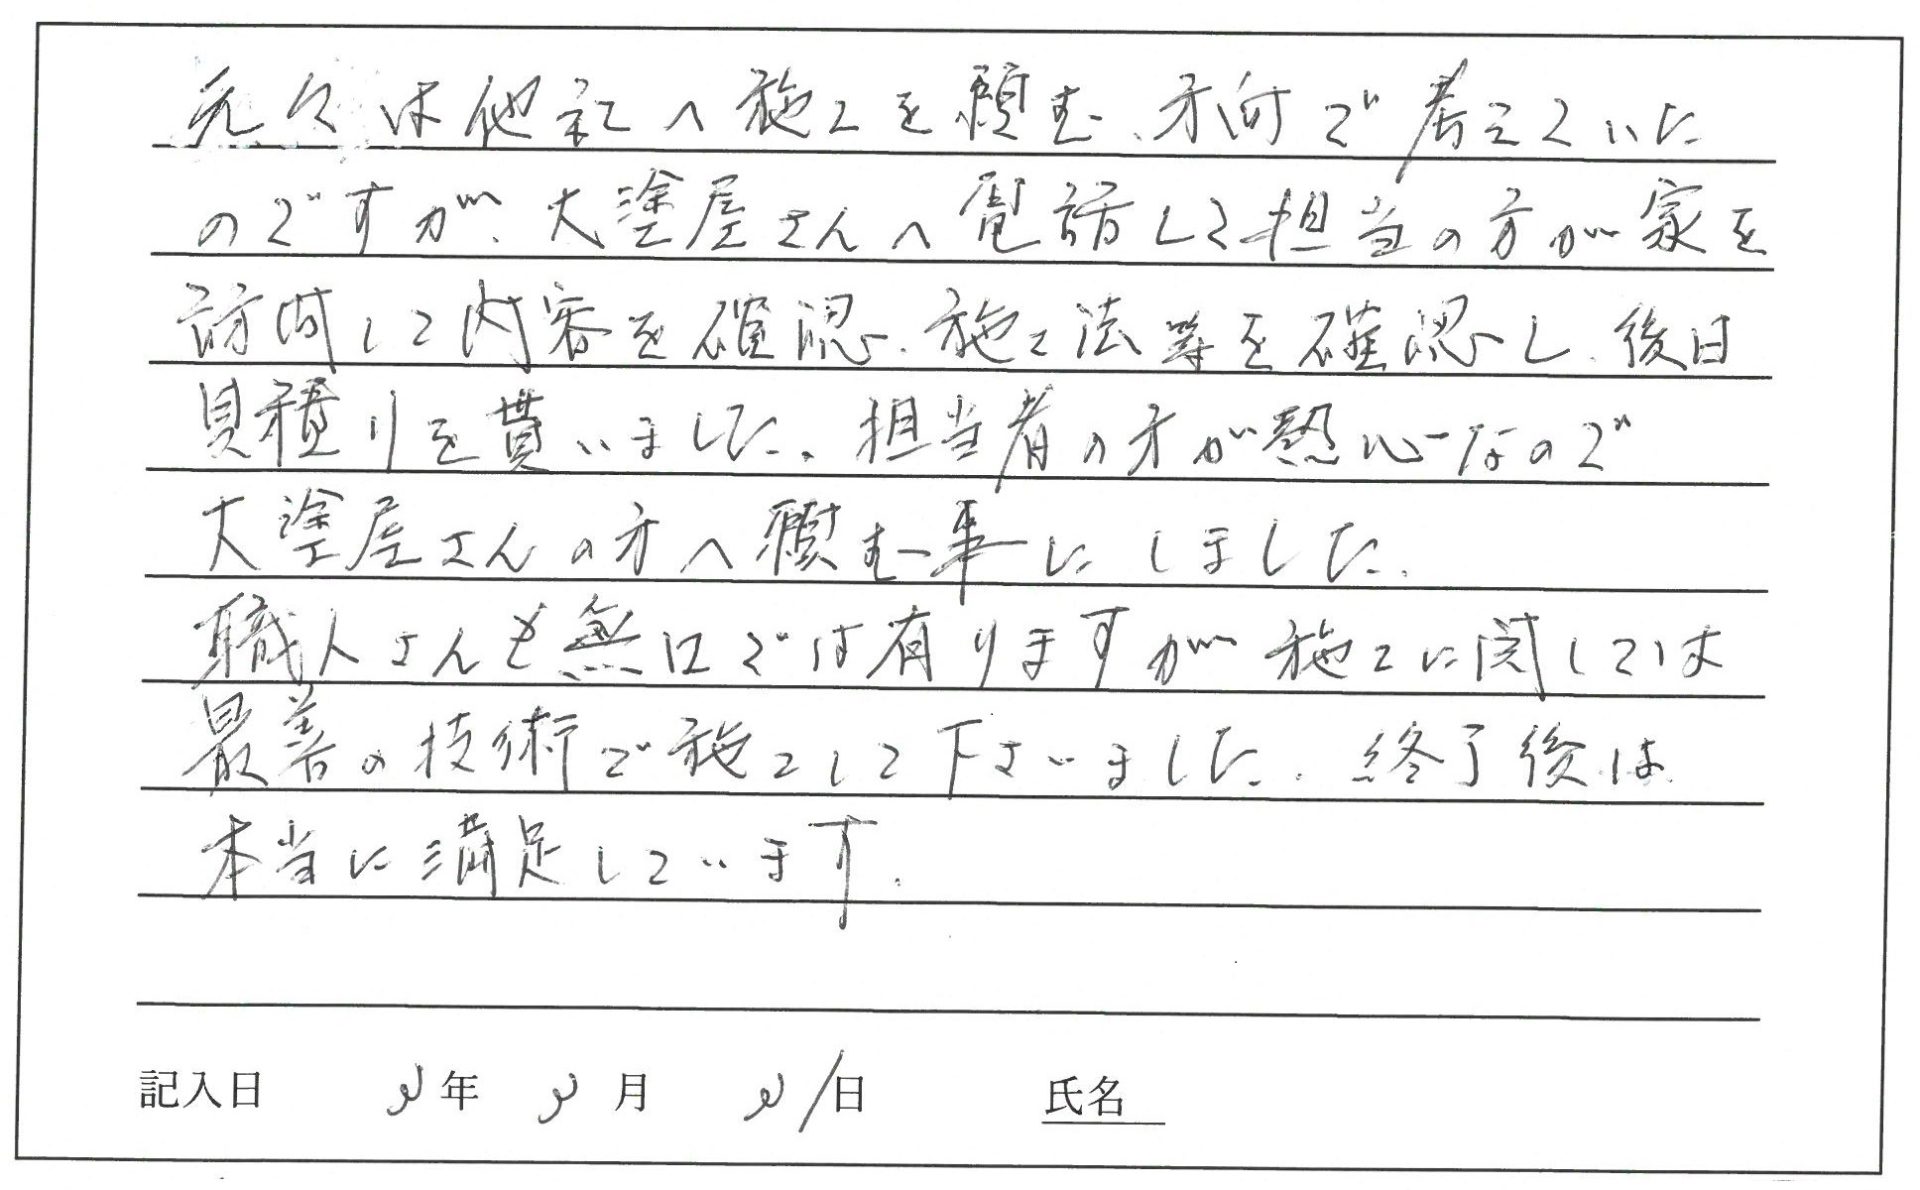 元々は他社へ施工を頼む、方向で考えていた
のですが、大塗屋さんへ電話して担当の方が家を
訪問して内容を確認、施工法等を確認し、後日
見積りを貰いました。担当者の方が熱心なので
大塗屋さんの方へ頼む事にしました。
職人さんも無口では有りますが施工に関しては
最善の技術で施工して下さいました。終了後は
本当に満足しています。
記入日 年 月 日 氏名